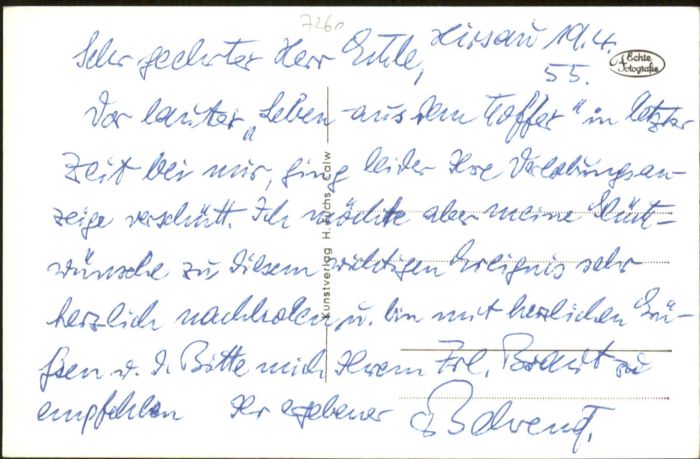 7260
Hirsau 19.4.
55.
Echte
Fotografie
Sehr geehrter Herr
Vor lauter „Leben aus dem Koffer" in letzter
Zeit bei mir, ging leider Ihre Verlobungsan-
zeige verschütt. Ich möchte aber meine Glück-
wünsche zu diesem wichtigen Ereignis sehr
herzlich nachholen, u. bin mit herzlichen Grü-
ßen u. d. Bitte mich Ihrem Frl. Braut zu
empfehlen Ihr ergebener
Kunstverlag H. Fuchs, Calw